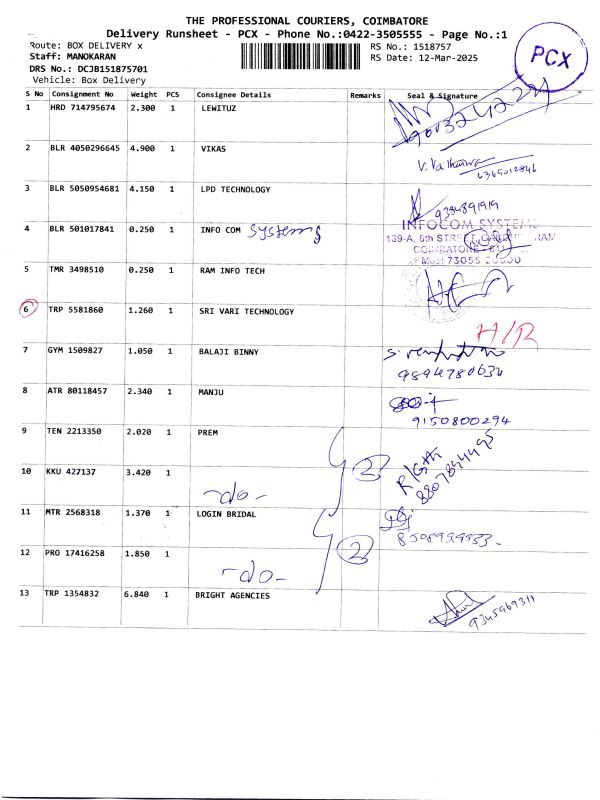 THE PROFESSIONAL COURIERS, COIMBATORE
Delivery Runsheet - PCX - Phone No.:0422-3505555 - Page No.:1
Route: BOX DELIVERY x
Staff: MANOKARAN
DRS No.: DCJB151875701
Vehicle: Box Delivery
RS No.: 1518757
RS Date: 12-Mar-2025
PCX
S No Consignment No Weight PCS Consignee Details Remarks Seal & Signature
1 HRD 714795674 2.300 1 LEWITUZ
2 BLR 4050296645 4.900 1 VIKAS
6369012846
3 BLR 5050954681 4.150 1 LPD TECHNOLOGY 9384891919
4 BLR 501017841 0.250 1 INFO COM Systems
INFOCOM SYSTEMS
139-A, 6th
COIMBATORE
73055
5 TMR 3498510 0.250 1 RAM INFO TECH
6 TRP 5581860 1.260 1 SRI VARI TECHNOLOGY
H/R
7 GYM 1509827 1.050 1 BALAJI BINNY
9894780634
8 ATR 80118457 2.340 1 MANJU
9150800294
9 TEN 2213350 2.020 1 PREM
2
8807844495
10 KKU 427137 3.420 1
-do-
11 MTR 2568318 1.370 1 LOGIN BRIDAL
12 PRO 17416258 1.850 1
2
-do-
13 TRP 1354832 6.840 1 BRIGHT AGENCIES
9345969311